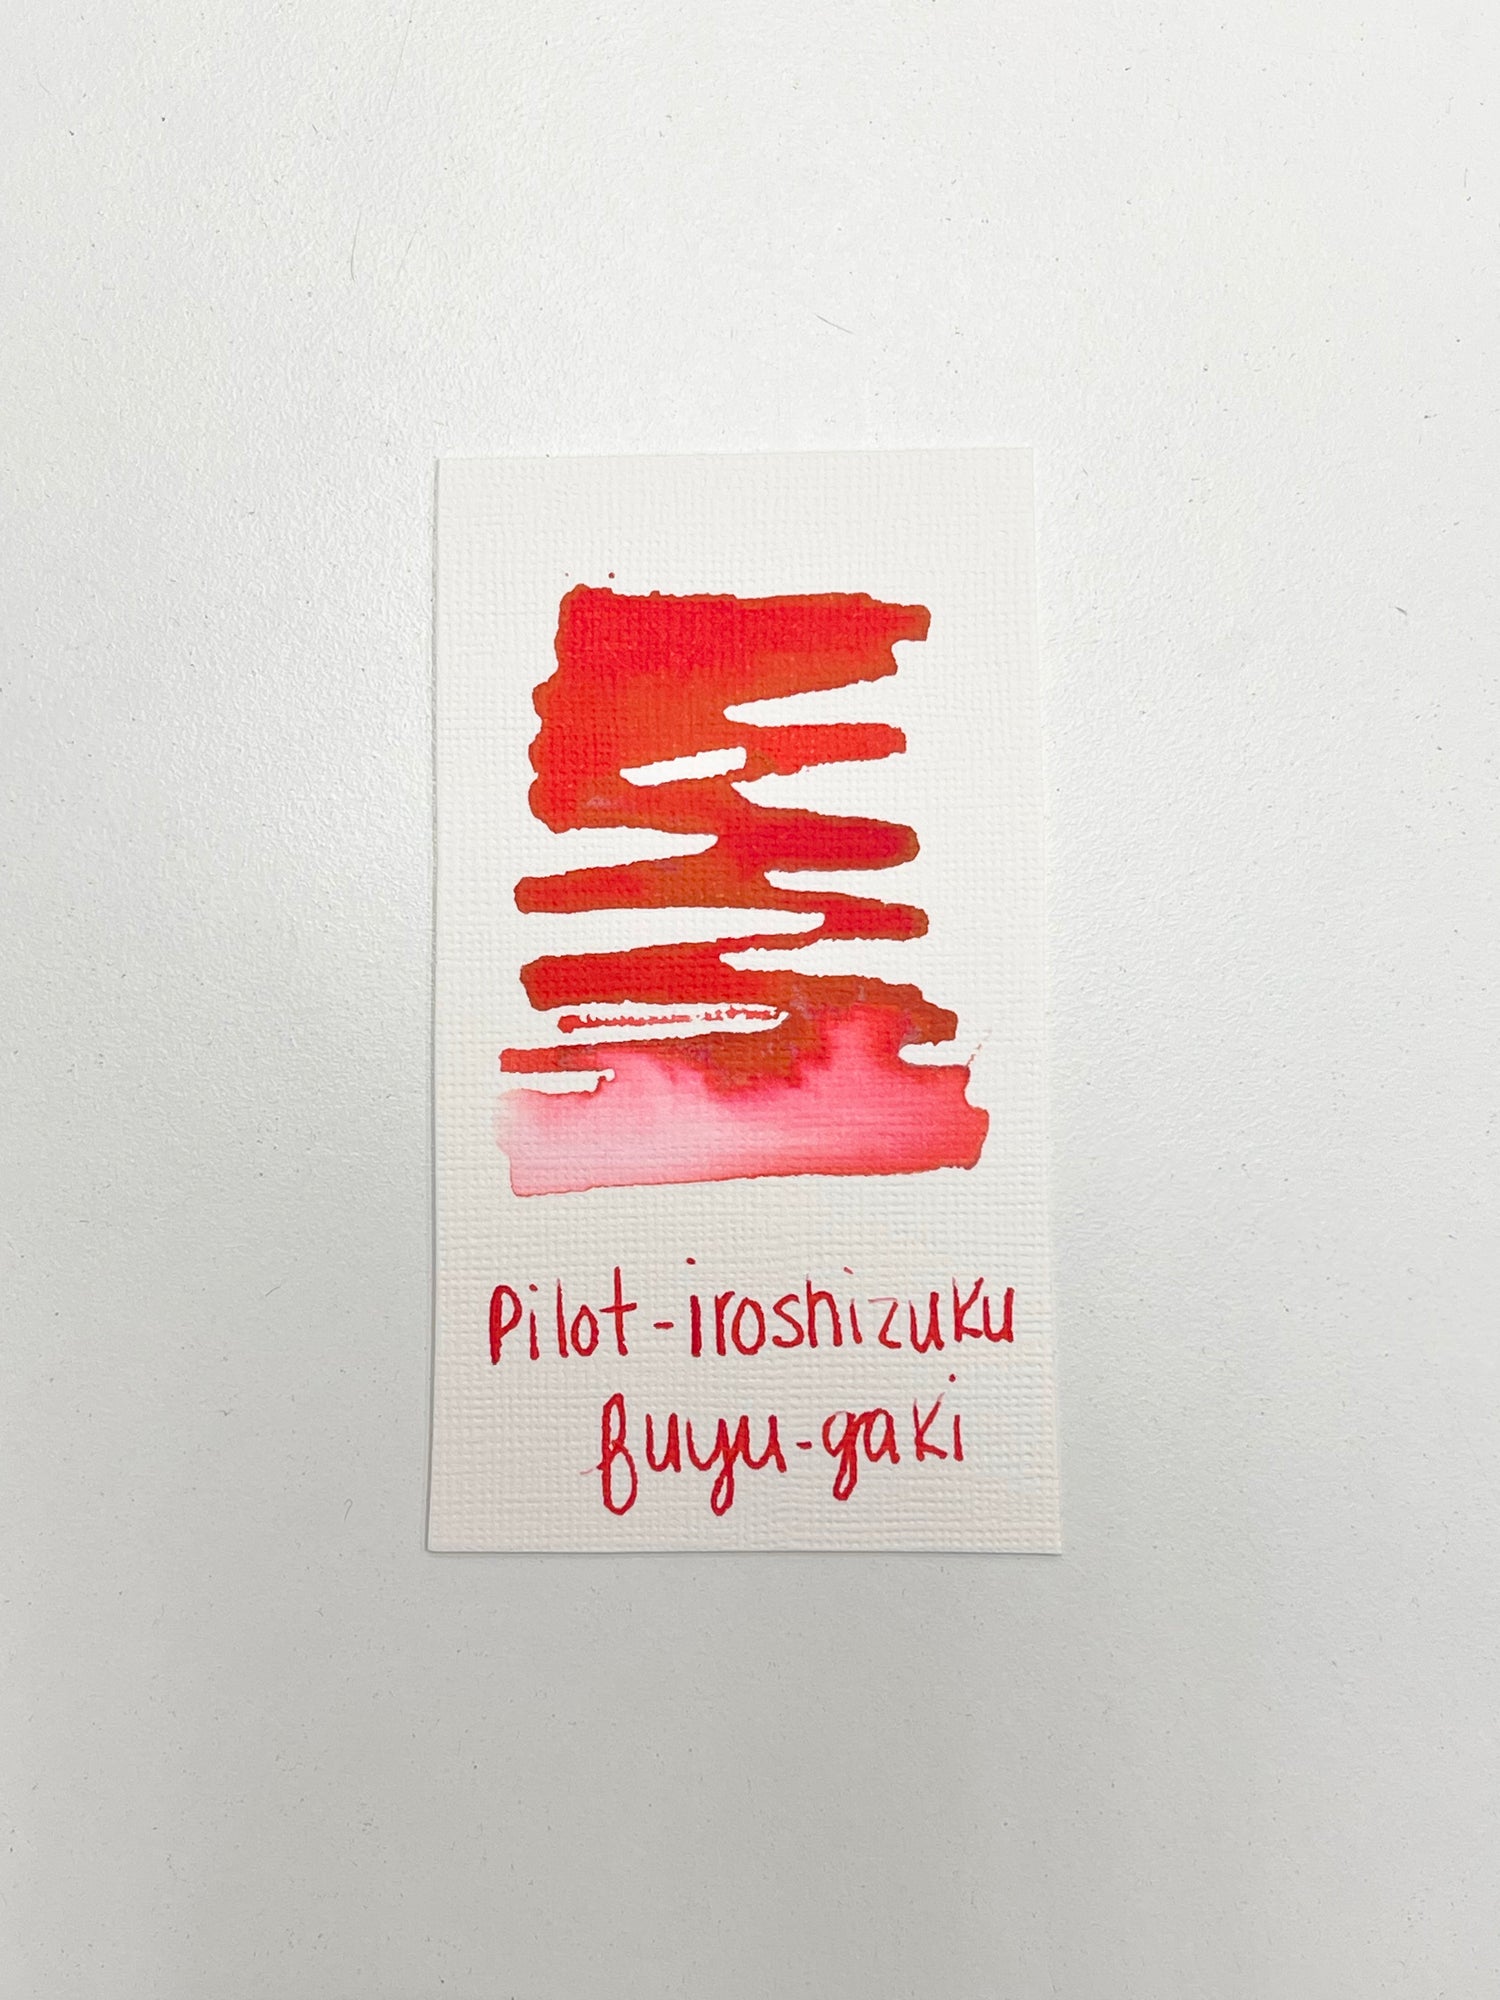 Pilot-iroshizuku
fuyu-gaki